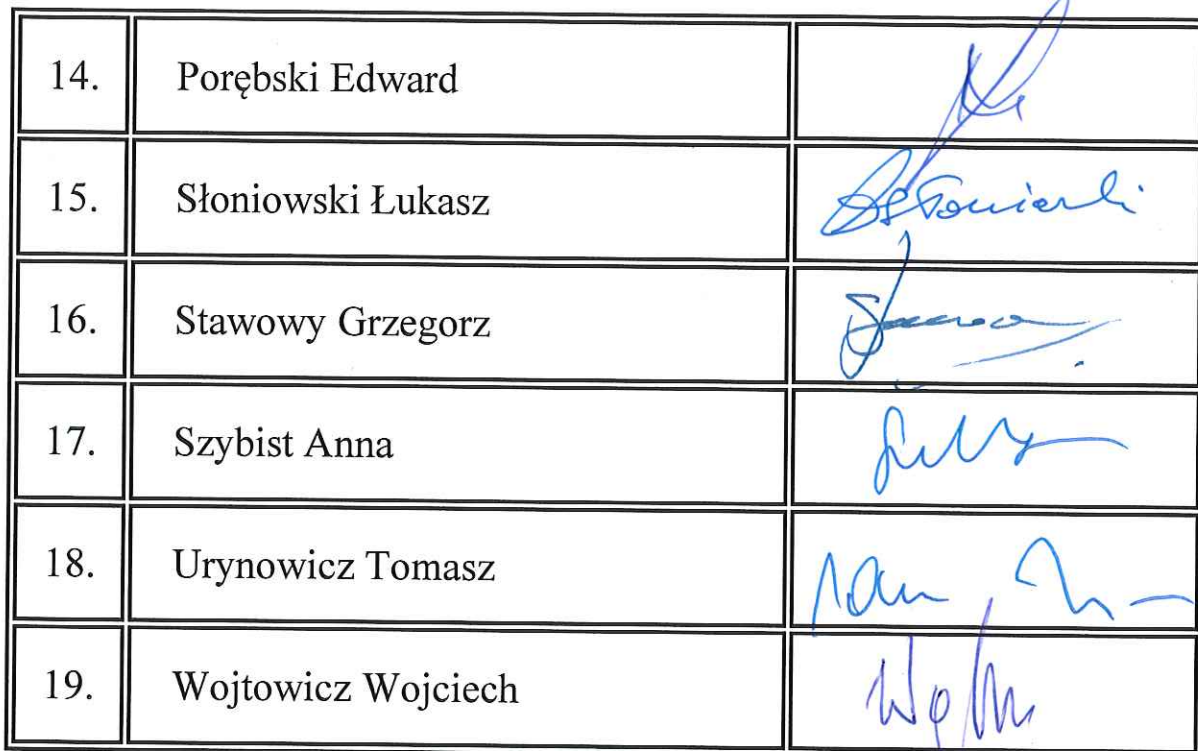 14. Porębski Edward
15. Słoniowski Łukasz
16. Stawowy Grzegorz
17. Szybist Anna
18. Urynowicz Tomasz
19. Wojtowicz Wojciech